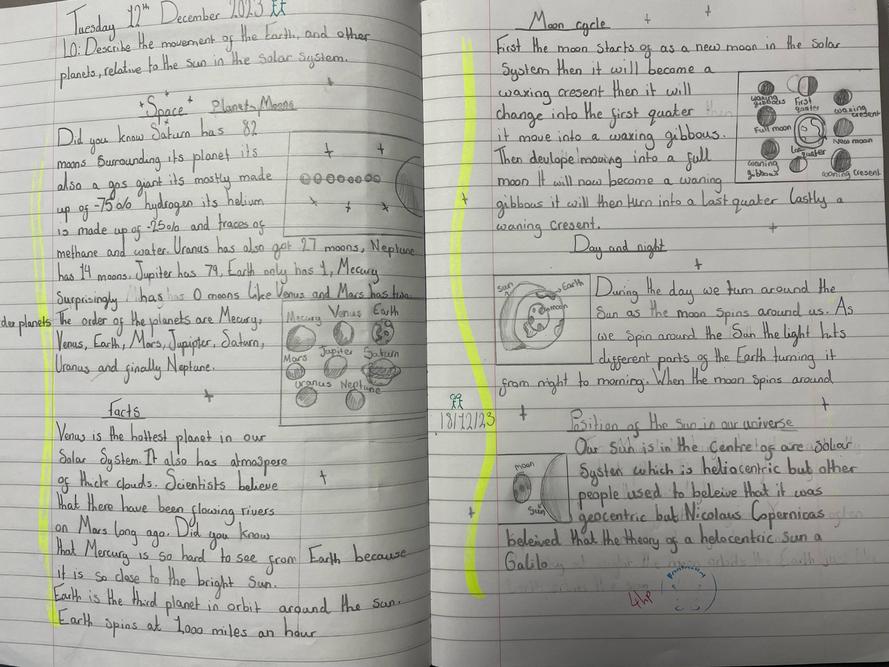 Tuesday 12th December 2023
LO: Describe the movement of the Earth, and other
planets, relative to the sun in the solar system.
Space Planets Moons
Did you know Saturn has 82
moons surrounding its planet its
also a gas giant its mostly made
up of ~75% hydrogen its helium
is made up of ~25% and traces of
methane and water. Uranus has also got 27 moons, Neptune
has 14 moons. Jupiter has 79, Earth only has 1, Mecury
Surprisingly has 0 moons like Venus and Mars has two.
planets The order of the planets are Mecury,
Venus, Earth, Mars, Jupipter, Saturn,
Uranus and finally Neptune.
Mecury Venus Earth
Mars Jupiter Saturn
Uranus Neptune
Facts
Venus is the hottest planet in our
Solar System. It also has atmaspere
of thick clouds. Scientists believe
that there have been flowing rivers
on Mars long ago. Did you know
that Mercury is so hard to see from Earth because
it is so close to the bright Sun.
Earth is the third planet in orbit around the sun.
Earth spins at 1,000 miles an hour
Moon cycle
First the moon starts of as a new moon in the solar
System then it will become a
waxing cresent then it will
change into the first quater
it move into a waxing gibbous.
Then devlope moving into a full
moon It will now become a waning
gibbous it will then turn into a last quater lastly a
waning cresent.
waxing gibbous First quater waxing cresent
Full moon New moon
waning gibbous Last quater waning cresent
Day and night
Sun Earth
moon
During the day we turn around the
Sun as the moon spins around us. As
we spin around the Sun the light hits
different parts of the Earth turning it
from night to morning. When the moon spins around
18/12/23
Position of the Sun in our universe
Our Sun is in the Centre of are solar
System which is heliocentric but other
people used to beleive that it was
geocentric but Nicolaus Copernicas
beleived that the theory of a helocentric sun a
Galilo
moon
Sun
4HP